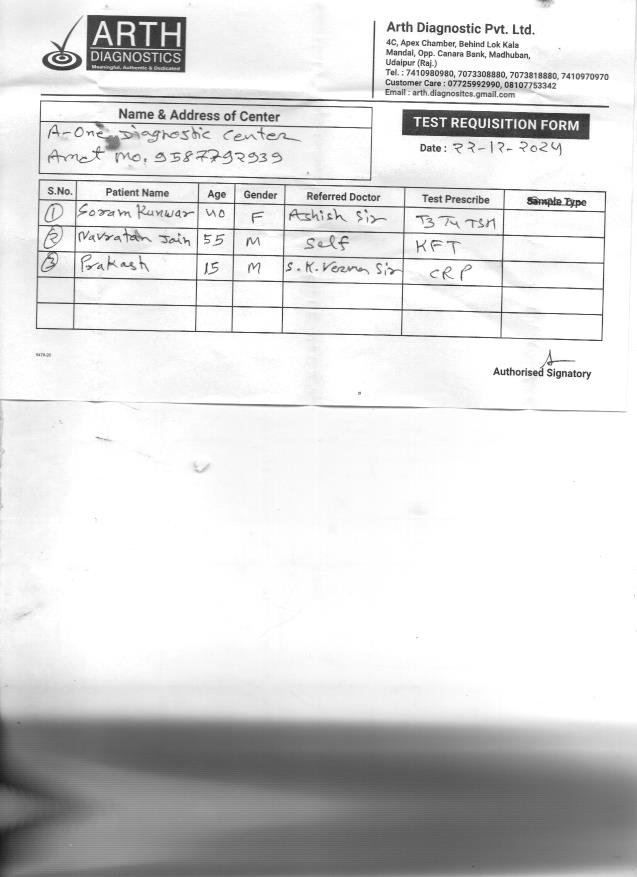 ARTH
DIAGNOSTICS
Meaningful, Authentic & Dedicated
Arth Diagnostic Pvt. Ltd.
4C, Apex Chamber, Behind Lok Kala
Mandal, Opp. Canara Bank, Madhuban,
Udaipur (Raj.)
Tel. : 7410980980, 7073308880, 7073818880, 7410970970
Customer Care : 07725992990, 08107753342
Email : arth.diagnositcs.gmail.com
Name & Address of Center
A-One Diagnostic Center
Amet Mo. 9587792939
TEST REQUISITION FORM
Date : 22-12-2024
S.No. Patient Name Age Gender Referred Doctor Test Prescribe Sample Type
1 Soram Kunwar 40 F Ashish Sir T3 T4 TSH
2 Navratan Jain 55 M Self KFT
3 Prakash 15 M S.K. Verma Sir CRP
Authorised Signatory